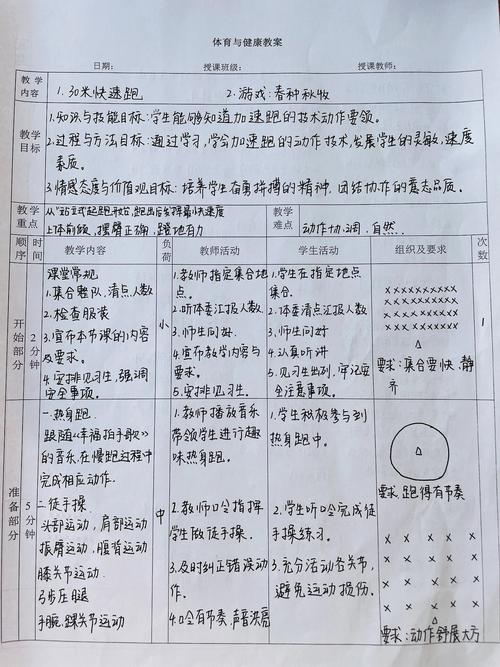 体育与健康教案
日期： 授课班级： 授课教师：
教学内容 1.30米快速跑 2.游戏：春种秋收
教学目标
1.知识与技能目标：学生能够知道加速跑的技术动作要领。
2.过程与方法目标：通过学习，学会加速跑的动作技术，发展学生的灵敏，速度
素质。
3.情感态度与价值观目标：培养学生奋勇拼搏的精神，团结协作的意志品质。
教学重点
从"站立式"起跑开始，跑出后发挥最快速度
上体前倾，摆臂正确，蹬地有力
教学难点
动作协调，自然.
顺序 时间 教学内容 负荷 教师活动 学生活动 组织及要求 次数
开始部分
2分钟
课堂常规
1.集合整队，清点人数
2.检查服装
3.宣布本节课的内容
及要求。
4.安排见习生，强调
安全事项。
小
1.教师指定集合地
点。
2.听体委汇报人数.
3.师生问好.
4.宣布教学内容与
要求。
5.安排见习生.
1.学生在指定地点
集合.
2.体委清点汇报人数.
3.师生问好
4.认真听讲
5.见习生出列，牢记安
全注意事项。
××××××××××
××××××××××
××××××××××
××××××××××
△
要求：集合要快、静
齐
1
准备部分
5分钟
一.热身跑.
跟随《幸福拍手歌》
的音乐，在慢跑过程中
完成相应动作.
二.徒手操
头部运动，肩部运动
振臂运动，腹背运动
膝关节运动
弓步压腿
手腕，踝关节运动
中
1.教师播放音乐
带领学生进行趣
味热身跑。
2.教师口令指挥
学生做徒手操.
3.及时纠正错误动
作.
4.口令有节奏，声音洪亮
1.学生积极参与到
热身跑中。
2.学生听口令完成徒
手操练习.
3.充分活动各关节，
避免运动损伤。
△
要求.跑得有节奏
× × × × ×
× × × × ×
× × × × ×
× × × × ×
△
要求：动作舒展大方